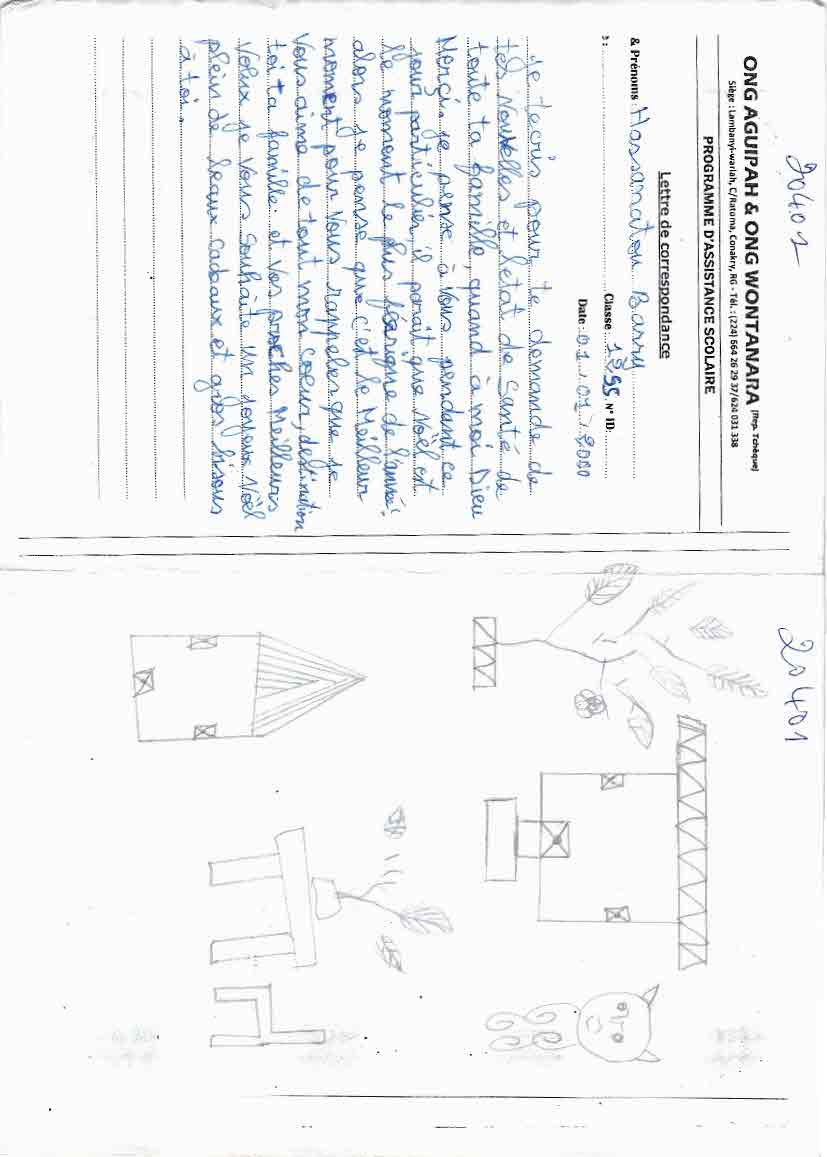 20401
ONG AGUIPAH & ONG WONTANARA (Rep. Tchèque)
Siège : Lambanyi-wariah, C/Ratoma, Conakry, RG - Tél. : (224) 664 26 29 37/624 031 338
PROGRAMME D'ASSISTANCE SCOLAIRE
Lettre de correspondance
& Prénoms : Hassanatou Barry
Classe : N° ID:
Date : 01
Je t'ecris pour te demande de
tes nouvelles et l'etat de Santé de
toute ta famille, quand à moi Dieu
Merçi. je pense à vous pendant ce
jour particulier, il parait que Noël est
le moment le plus féerique de l'année!
alors je pense que c'est le Meilleur
moment pour vous rappeler que je
vous aime de tout mon coeur, destination
toi ta famille et vos proches Meilleurs
Voeux je vous souhaite un joyeux Noël
plein de beaux cadeaux et gros bisous
à toi.
20401